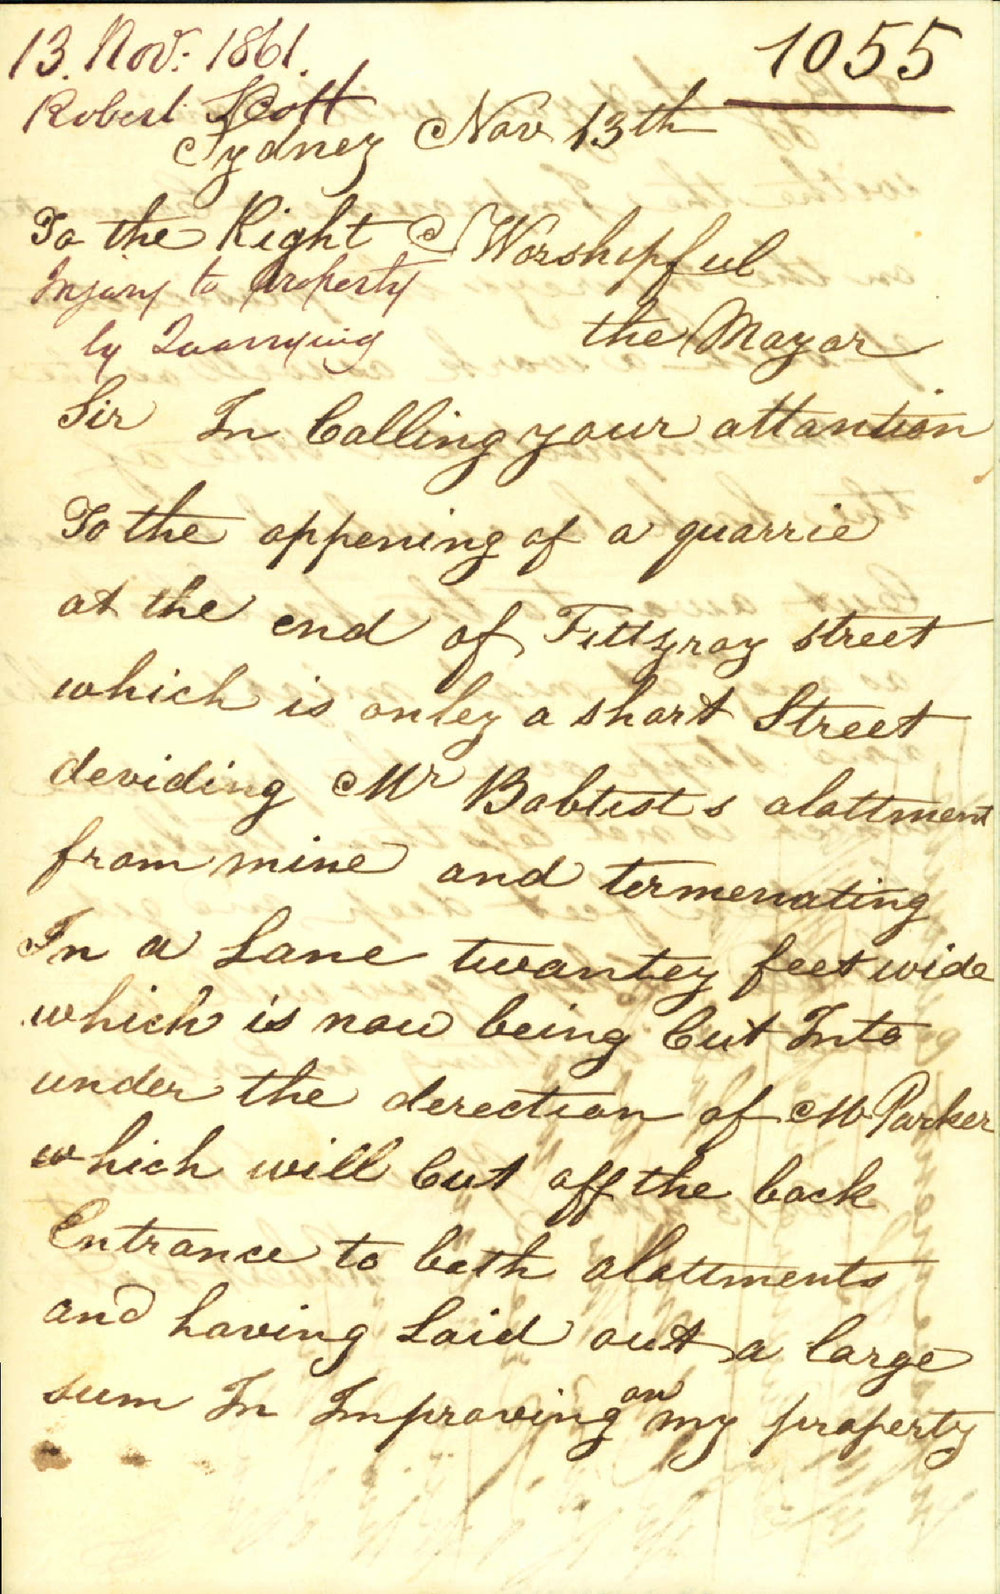 13. Nov: 1861.
1055
Robert Scott
Sydney Nov 13th
To the Right Worshipful
Injury to property
by Quarrying
the Mayor
Sir In Calling your attantion
To the oppening of a quarrie
at the end of Fittzroy street
which is onley a short Street
deviding Mr Babtist s alottment
from mine and termenating
In a Lane twantey feet wide
which is now being Cut Into
under the derection of Mr Parker
which will Cut off the back
Entrance to both alottments
and having Laid out a large
sum In Improving on my property